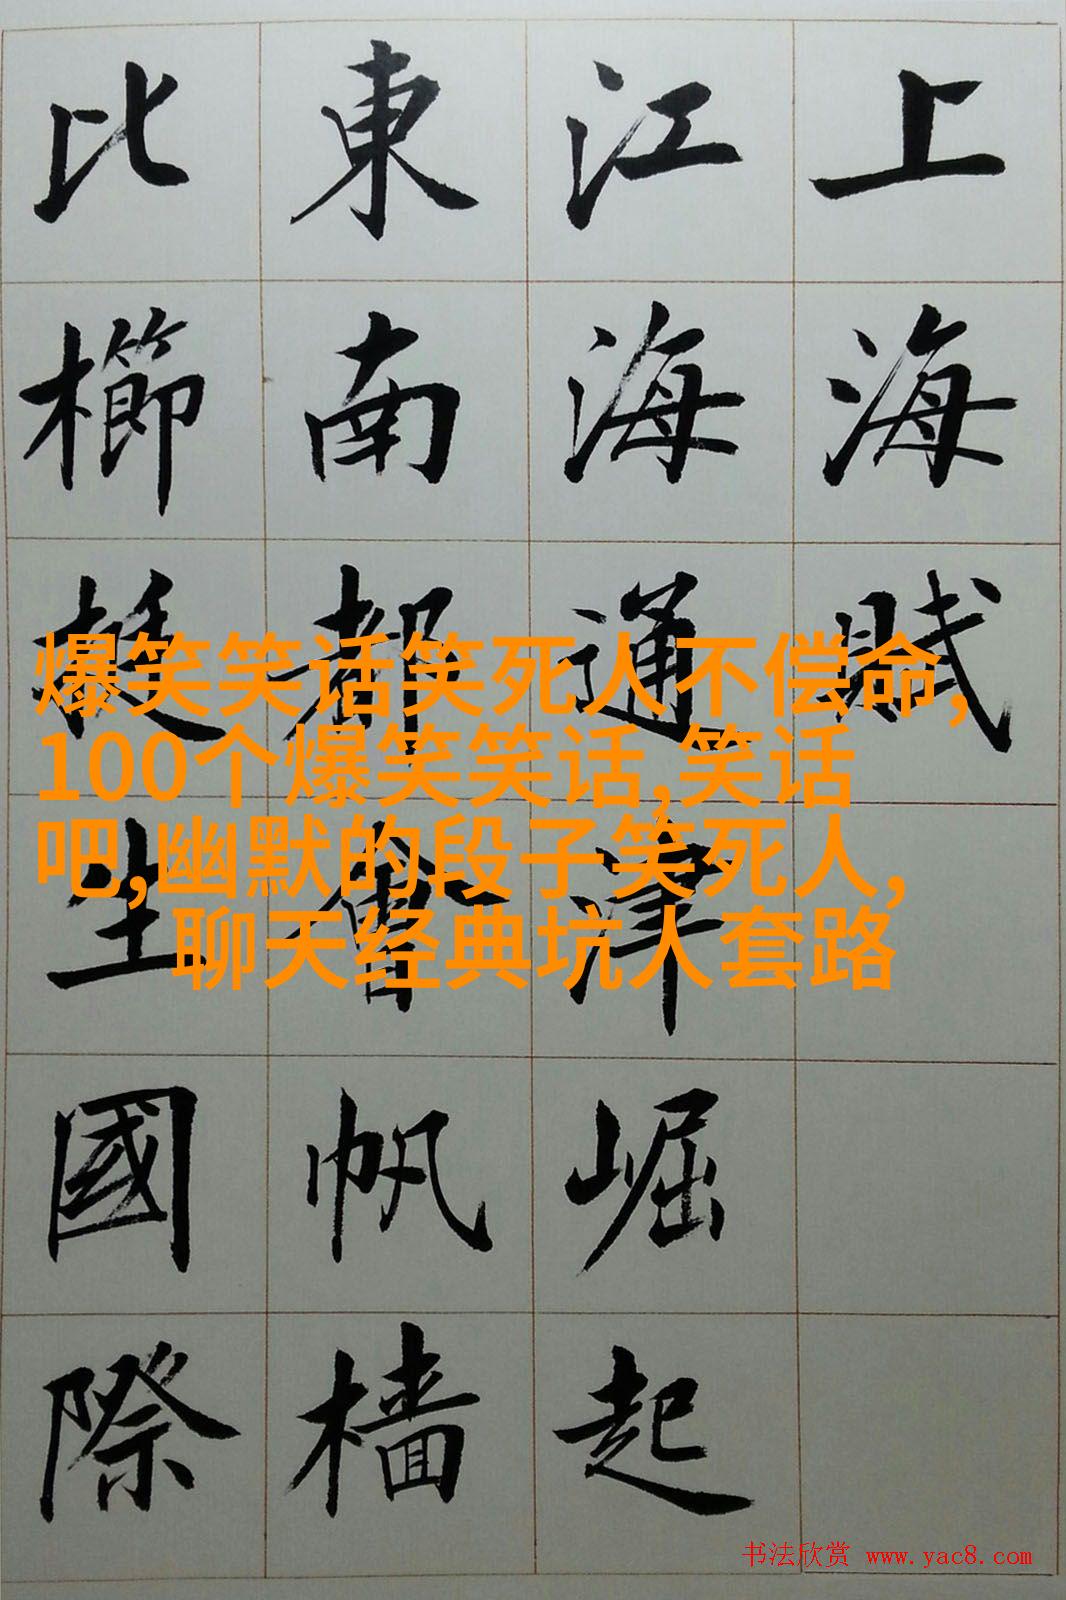 上海賦
江海通津崛起
東南都會帆檣
比櫛挺生國際
爆笑笑话笑死人不偿命,
100个爆笑笑话,笑话
吧,幽默的段子笑死人,
聊天经典坑人套路
书法欣赏 www.yac8.com